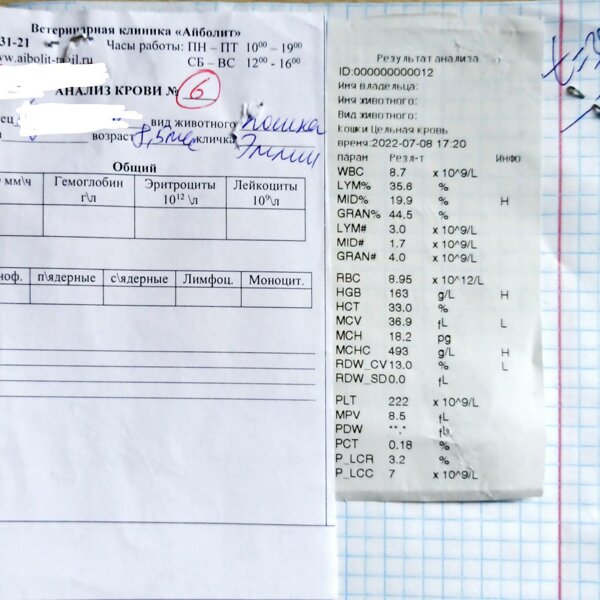 Ветеринарная клиника «Айболит»
31-21 Часы работы: ПН – ПТ 10⁰⁰ – 19⁰⁰
СБ – ВС 12⁰⁰ - 16⁰⁰
АНАЛИЗ КРОВИ № 6
вид животного Кошка
возраст 8,5 мес кличка Эмми
Общий
мм\ч Гемоглобин г\л Эритроциты 10¹² \л Лейкоциты 10⁹\л
ноф. п\ядерные с\ядерные Лимфоц. Моноцит.
Результат анализа
ID:000000000012
Имя владельца:
Имя животного:
Вид животного:
Кошки Цельная кровь
время:2022-07-08 17:20
парам Резл-т Инфо
WBC 8.7 x 10^9/L
LYM% 35.6 %
MID% 19.9 % H
GRAN% 44.5 %
LYM# 3.0 x 10^9/L
MID# 1.7 x 10^9/L
GRAN# 4.0 x 10^9/L
RBC 8.95 x 10^12/L
HGB 163 g/L H
HCT 33.0 %
MCV 36.9 fL L
MCH 18.2 pg
MCHC 493 g/L H
RDW_CV 13.0 % L
RDW_SD 0.0 fL
PLT 222 x 10^9/L
MPV 8.5 fL
PDW **.* fL
PCT 0.18 %
P_LCR 3.2 %
P_LCC 7 x 10^9/L